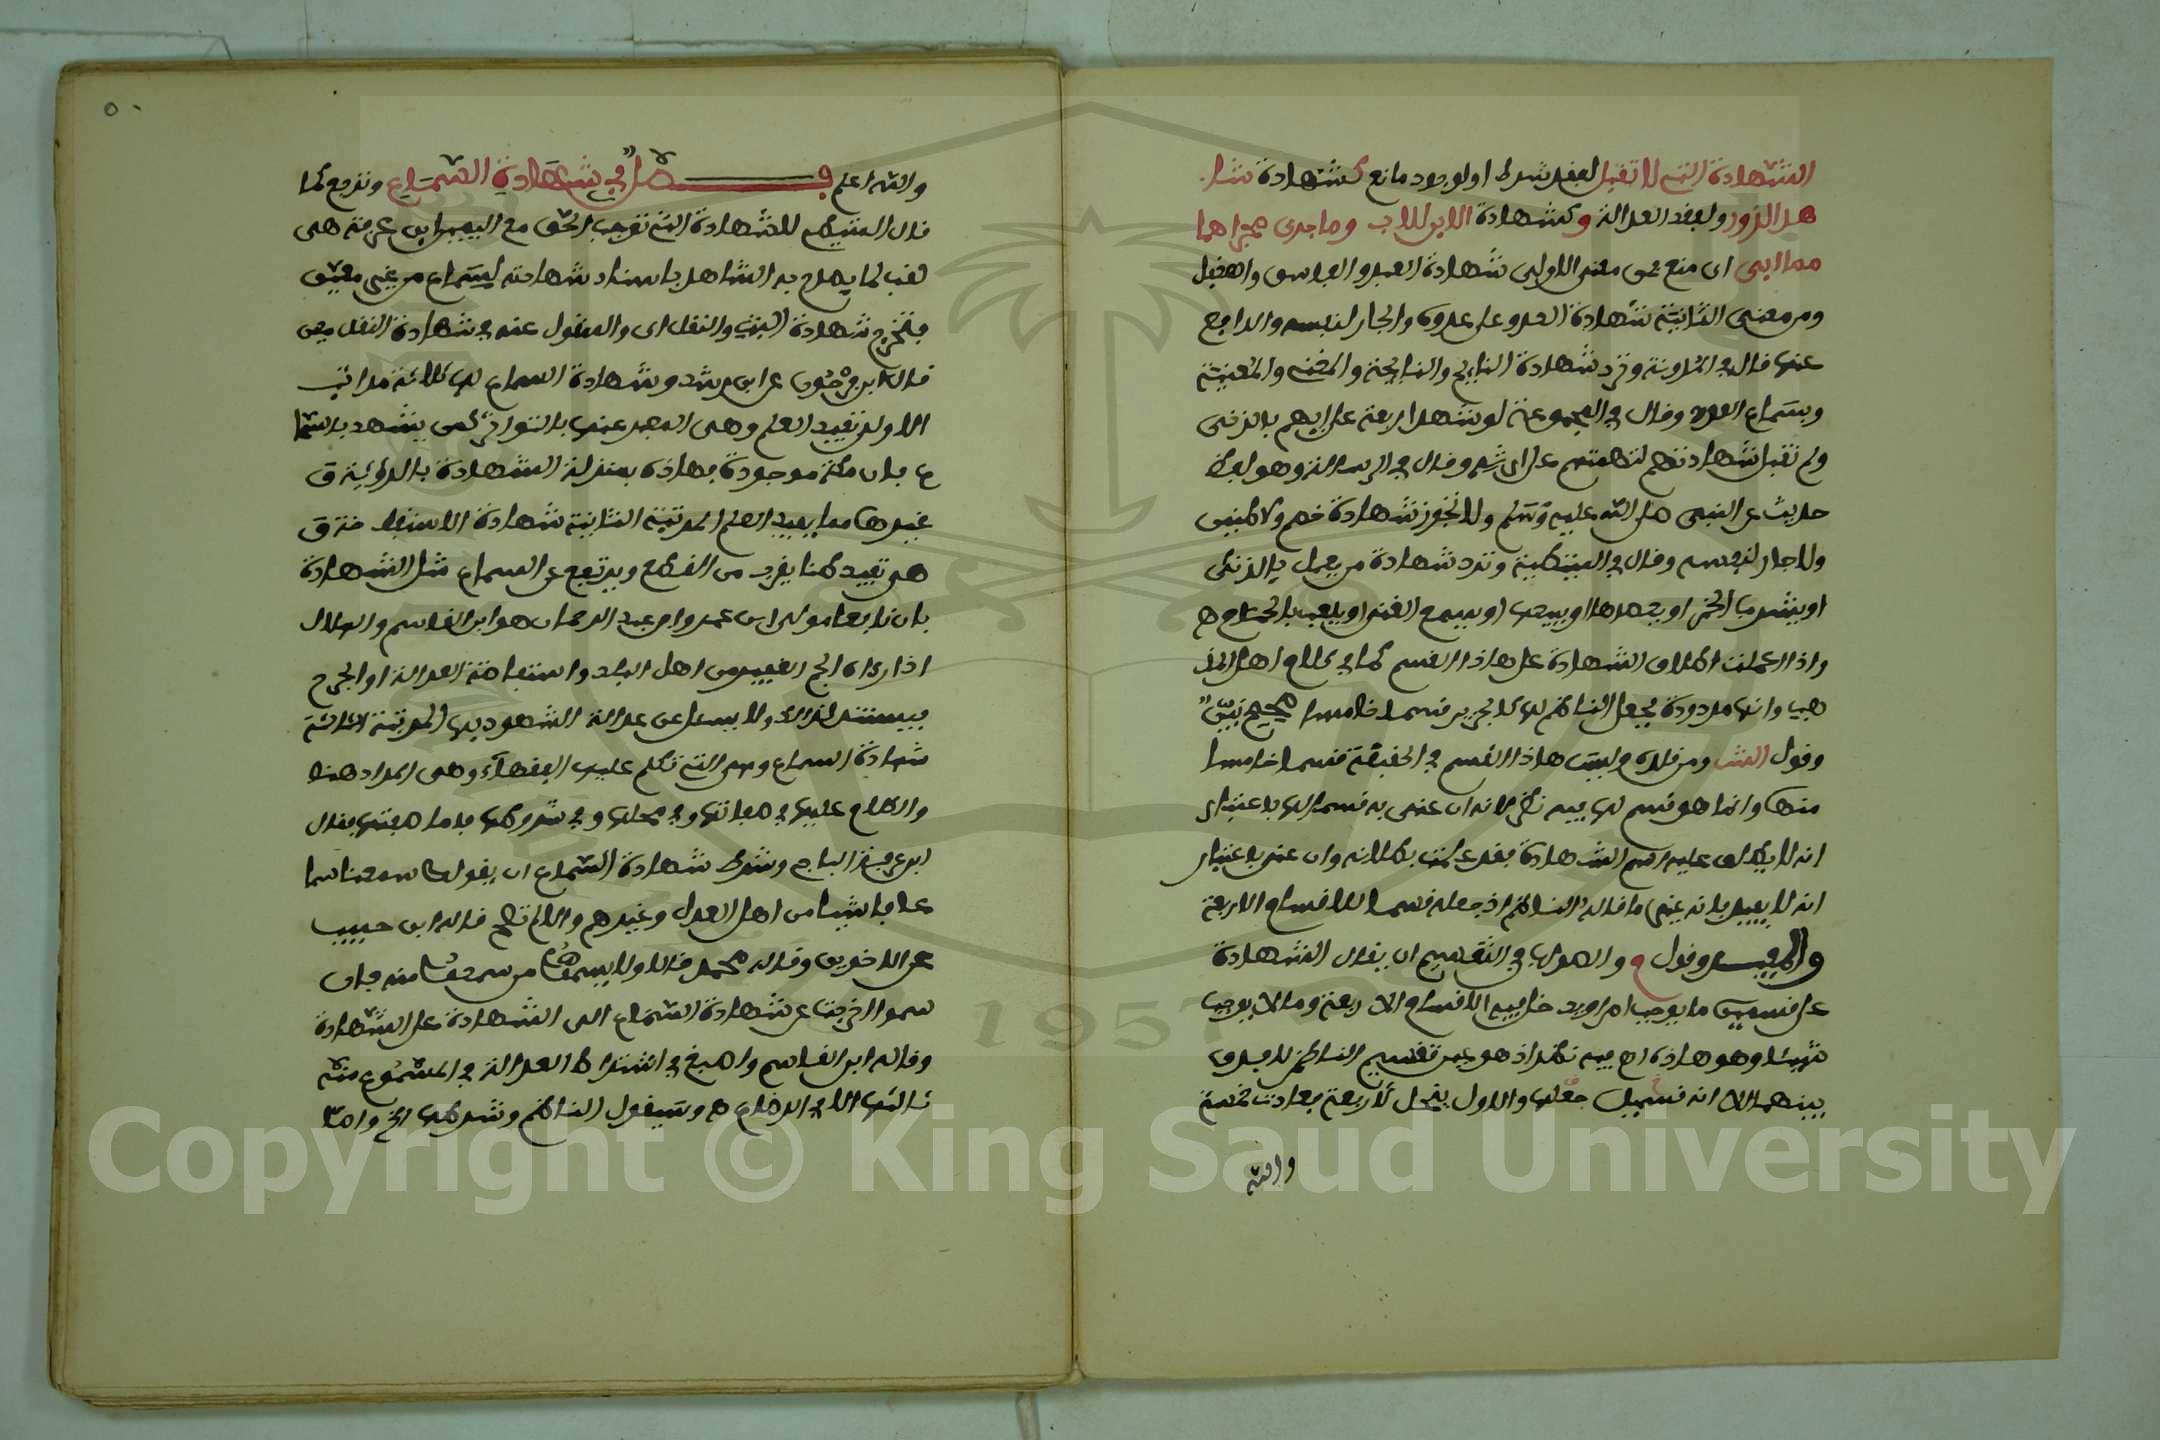 الشهادة التي لا تقبل لفقد شرط او لوجود مانع كشهادة شا
هد الزور ولفقد العدالة وكشهادة الابن للاب وما جرى مجراهما
مما ابي اى منع فمن معنى الاولى شهادة العبد والفاسق والمغفل
ومن معنى الثانية شهادة العدو على عدوه والجار لنفسه والدافع
عنها قال في المدونة وترد شهادة النايح والنايحة والمغني والمغنية
وبسماع العود وقال في المجموعة لو شهد اربعة على ابيهم بالزنى
لم تقبل شهادتهم لتهمتهم على ارثه وقال في الرسالة وهو لفظ
حديث عن النبي صلى الله عليه وسلم ولا تجوز شهادة خصم ولا ظنين
ولا جار لنفسه وقال في المتيطية وترد شهادة من يعمل بالربى
او يشرب الخمر او يعصرها او يبيعها او يسمع الغنى او يلعب بالحمام ه
واذا علمت اطلاق الشهادة على هاذا القسم كما في كلام اهل المذ
هب وانها مردودة فجعل الناظم لها كالجزيري قسما خامسا صحيح بين
وقول الش ومن قلده وليس هاذا القسم في الحقيقة قسما خامسا
منها وانما هو قسم لها فيه نظر لانه ان عنى به قسما لها باعتبار
انه لا يطلق عليه اسم الشهادة فقد علمت بطلانه وان عنى باعتبار
انه لا يفيد بانه يعنى ما قاله الناظم اذ جعله قسما للاقسام الاربعة
والمفيد وقول م والاصل في التقسيم ان يقال الشهادة
على قسمين ما يوجب امرا ويدخل فيه الاقسام الاربعة وما لا يوجب
شيئا وهو هاذه اه فيه نظر اذ هو عين تقسيم الناظم لا فرق
بينهما الا انه قسمين جعلها والاول ينحل لاربعة فعادت خمسة
والله
٥٠
والله اعلم فصل في شهادة السماع وترجع كما
قال المتيطي للشهادة التي توجب الحق مع اليمين ابن عرفة هي
لقب لما يصرح به الشاهد باسناد شهادته لسماع من غير معين
فتخرج شهادة البت والنقل اى والمنقول عنه في شهادة النقل معين
قال ابن فرحون عن ابن رشد وشهادة السماع لها ثلاثة مراتب
الاولى تفيد العلم وهي المعبر عنها بالتواتر كمن يشهد بالسما
ع بان مكة موجودة فهاذه بمنزلة الشهادة بالرؤية و
غيرها مما يفيد العلم المرتبة الثانية شهادة الاستفاضة و
هي تفيد ظنا يقرب من القطع ويرتفع عن السماع مثل الشهادة
بان نافعا مولى ابن عمر وان عبد الرحمان هو ابن القاسم والهلال
اذا رءاه الجم الغفير من اهل البلد واستفاضة العدالة او الجرح
فيستند لذالك ولا يسال عن عدالة الشهود بها المرتبة الثالثة
شهادة السماع وهي التي تكلم عليها الفقهاء وهي المراد هنا
والكلام عليها في صفاتها وفي محلها وفي شروطها فاما صفتها فقال
ابن عرفة الباجي وشرط شهادة السماع ان يقولوا سمعنا سما
عا فاشيا من اهل العدل وغيرهم والا لم تصح قاله ابن حبيب
عن الاخوين وقاله محمد قالا ولا يسموا من سمعوا منه فان
سموا خرجت عن شهادة السماع الى الشهادة على الشهادة
وقاله ابن القاسم واصبغ في اشتراط العدالة في المسموع منه
ثالثها الا في الرضاع ه وسيقول الناظم وشرطها الخ واما